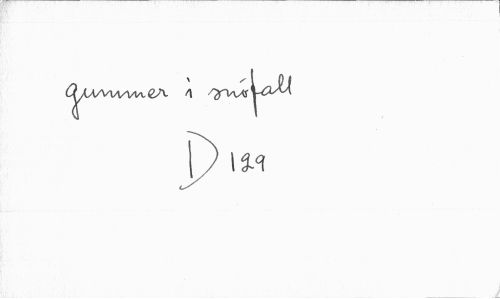 gummer i snöfall
D 129